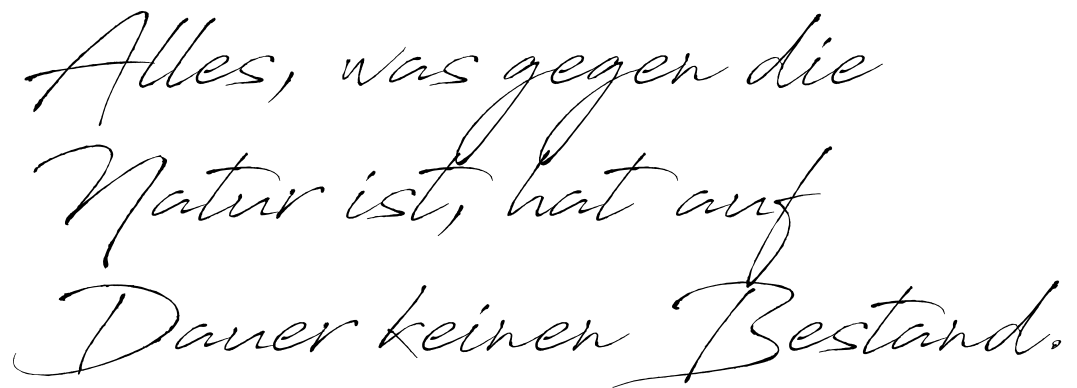 Alles, was gegen die
Natur ist, hat auf
Dauer keinen Bestand.